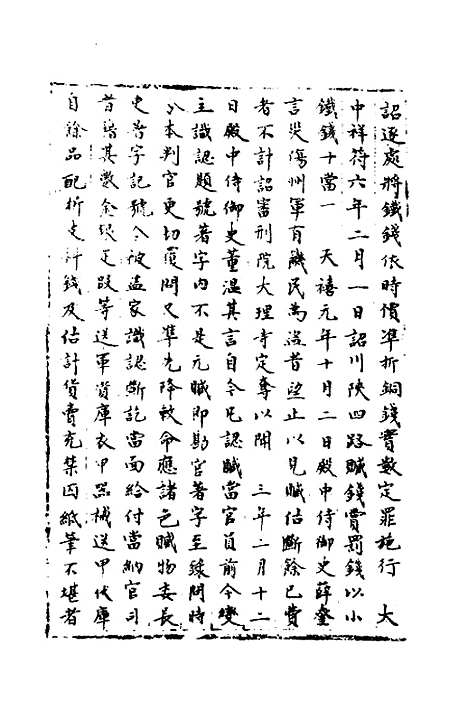 詔逐處將鐵錢依時價準折銅錢實數定罪施行　大
中祥符六年二月一日詔川陝四路贓錢贖罰錢以小
鐵錢十當一　天禧元年十月二日殿中侍御史薛奎
言災傷州軍有饑民為盜者望止以見贓估斷餘已費
者不計詔審刑院大理寺定奪以聞　三年二月十二
日殿中侍御史董溫其言自今凡認贓當官員前令變
主識認題號著字內不是元贓即勘官著字至錄問時
令本判官更切覆問又準先降敕命應諸色贓物委長
吏著字記號令被盜家識認斷訖當面給付當納官司
者籍其數金銀疋段等送軍資庫衣甲器械送甲仗庫
自餘品配折支科錢及估計貨賣充集囚紙筆不堪者